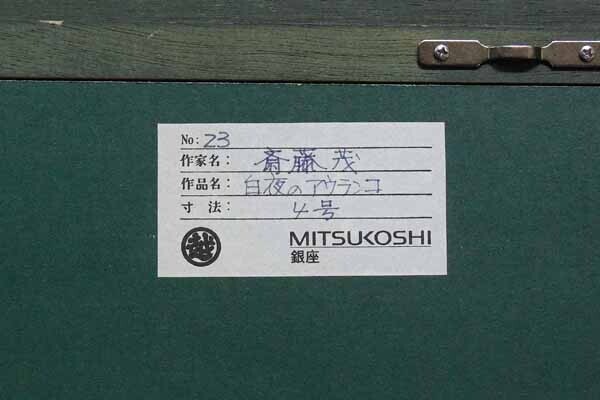 No: 23
作家名: 斎藤茂
作品名: 白夜のアウランコ
寸法: 4号
越 MITSUKOSHI
銀座